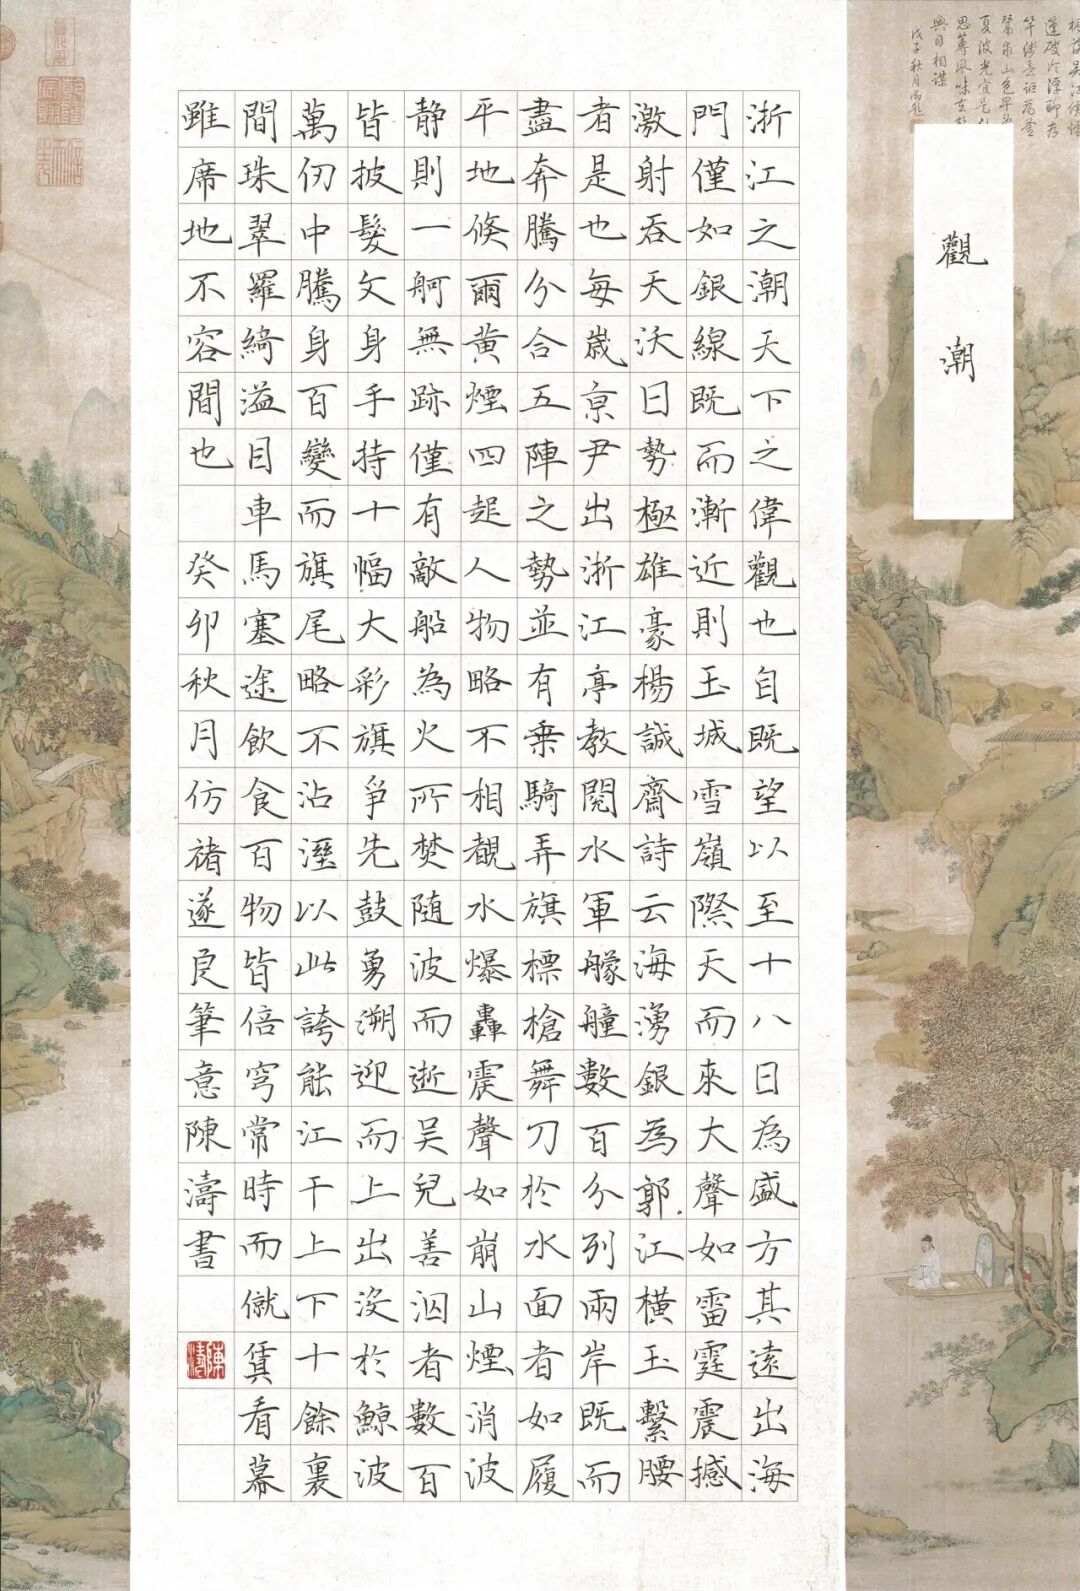 觀潮
浙江之潮天下之偉觀也自既望以至十八日為盛方其遠出海
門僅如銀線既而漸近則玉城雪嶺際天而來大聲如雷霆震撼
激射吞天沃日勢極雄豪楊誠齋詩云海湧銀為郭江橫玉繫腰
者是也每歲京尹出浙江亭教閱水軍艨艟數百分列兩岸既而
盡奔騰分合五陣之勢並有乘騎弄旗標槍舞刀於水面者如履
平地倏爾黃煙四起人物略不相覩水爆轟震聲如崩山煙消波
静則一舸無跡僅有敵船為火所焚随波而逝吳兒善泅者數百
皆披髮文身手持十幅大彩旗爭先鼓勇溯迎而上出沒於鯨波
萬仞中騰身百變而旗尾略不沾溼以此誇能江干上下十餘裏
間珠翠羅綺溢目車馬塞途飲食百物皆倍穹常時而僦賃看幕
雖席地不容間也 癸卯秋月仿褚遂良筆意陳濤書
陳濤
與目相謀
戊子秋月御題